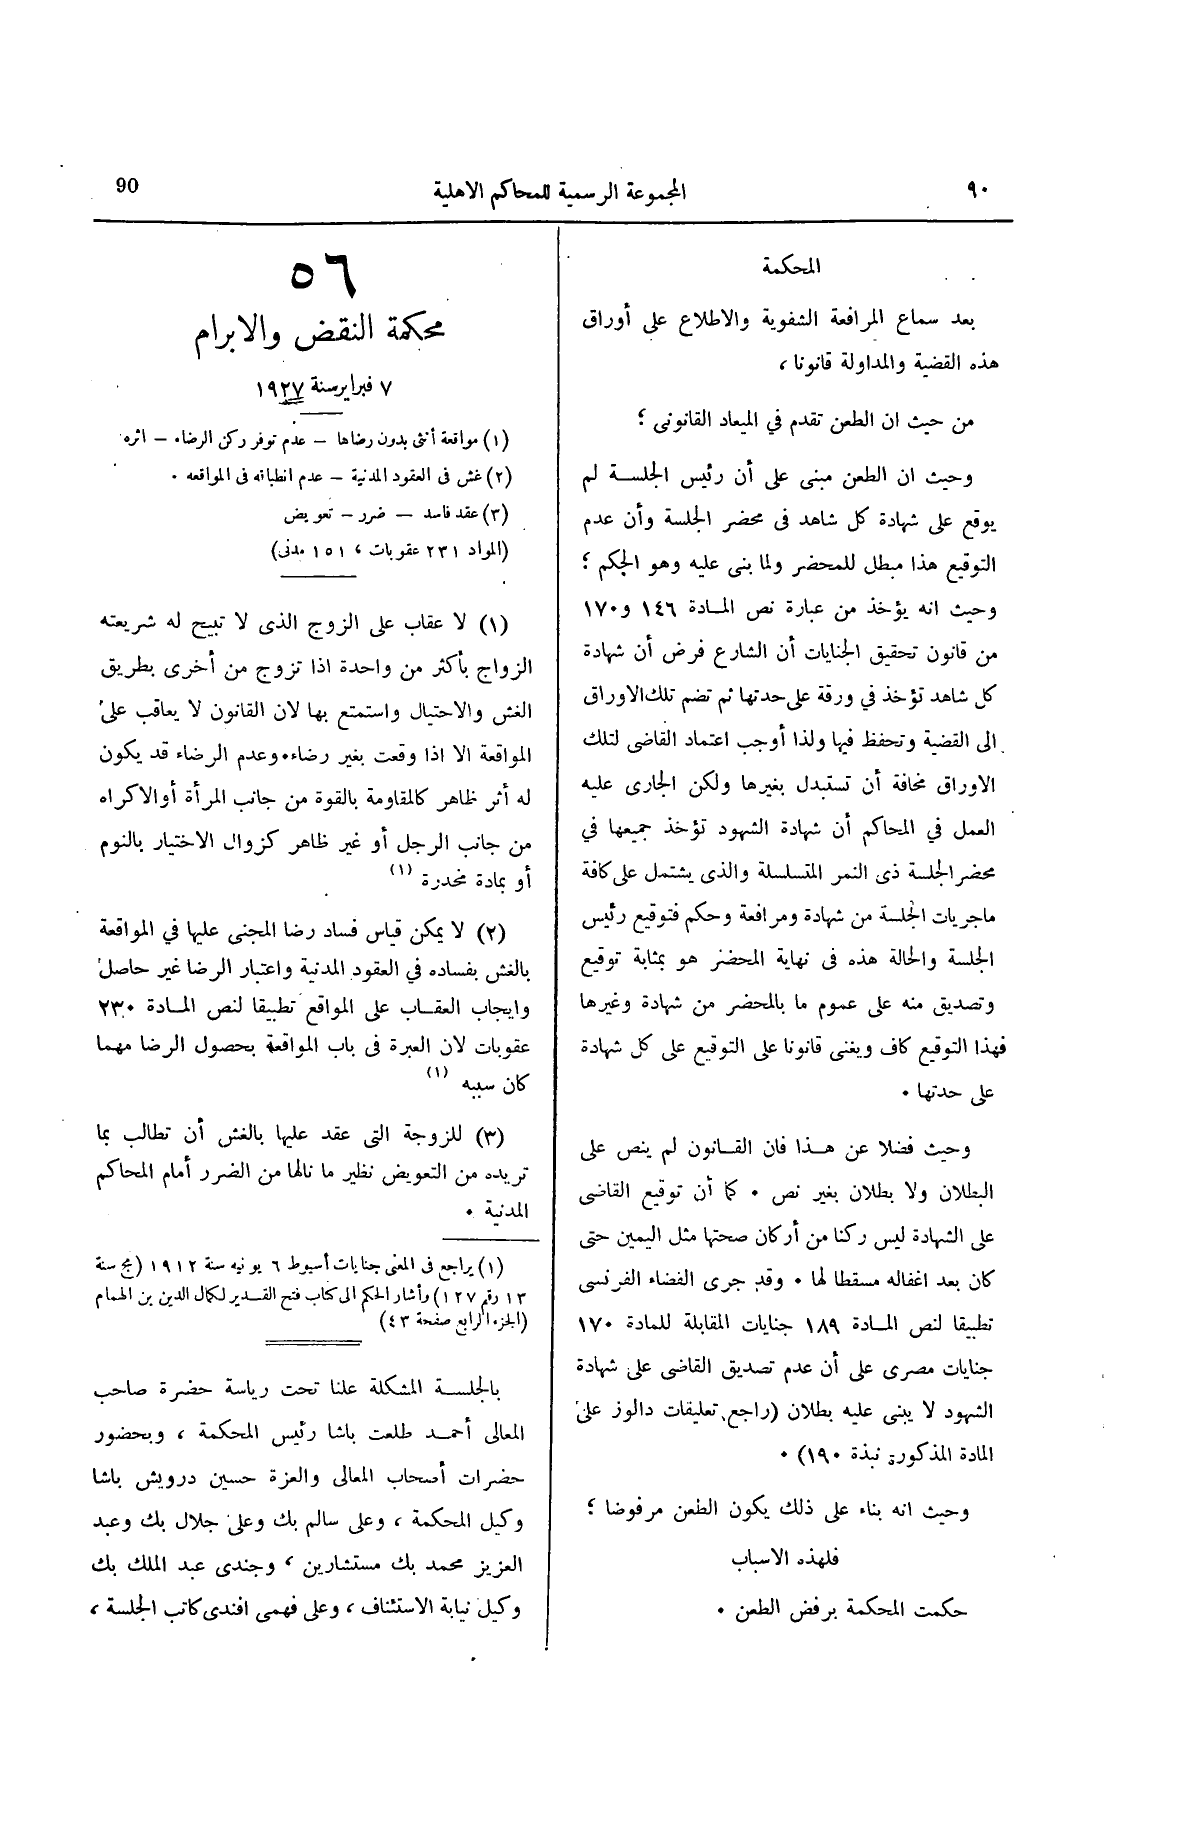 ٩٠ المجموعة الرسمية للمحاكم الاهلية 90
المحكمة
بعد سماع المرافعة الشفوية والاطلاع على أوراق
هذه القضية والمداولة قانونا ،
من حيث ان الطعن تقدم في الميعاد القانونى ؛
وحيث ان الطعن مبنى على أن رئيس الجلسة لم
يوقع على شهادة كل شاهد فى محضر الجلسة وأن عدم
التوقيع هذا مبطل للمحضر ولما بنى عليه وهو الحكم ؛
وحيث انه يؤخذ من عبارة نص المادة ١٤٦ و١٧٠
من قانون تحقيق الجنايات أن الشارع فرض أن شهادة
كل شاهد تؤخذ في ورقة على حدتها ثم تضم تلك الاوراق
الى القضية وتحفظ فيها ولذا أوجب اعتماد القاضى لتلك
الاوراق مخافة أن تستبدل بغيرها ولكن الجارى عليه
العمل في المحاكم أن شهادة الشهود تؤخذ جميعها في
محضر الجلسة ذى النمر المتسلسلة والذى يشتمل على كافة
ماجريات الجلسة من شهادة ومرافعة وحكم فتوقيع رئيس
الجلسة والحالة هذه فى نهاية المحضر هو بمثابة توقيع
وتصديق منه على عموم ما بالمحضر من شهادة وغيرها
فهذا التوقيع كاف ويغنى قانونا على التوقيع على كل شهادة
على حدتها ٠
وحيث فضلا عن هذا فان القانون لم ينص على
البطلان ولا بطلان بغير نص ٠ كما أن توقيع القاضى
على الشهادة ليس ركنا من أركان صحتها مثل اليمين حتى
كان بعد اغفاله مسقطا لها ٠ وقد جرى القضاء الفرنسى
تطبيقا لنص المادة ١٨٩ جنايات المقابلة للمادة ١٧٠
جنايات مصرى على أن عدم تصديق القاضى على شهادة
الشهود لا يبنى عليه بطلان (راجع تعليقات دالوز على
المادة المذكورة نبذة ١٩٠) ٠
وحيث انه بناء على ذلك يكون الطعن مرفوضا ؛
فلهذه الاسباب
حكمت المحكمة برفض الطعن ٠
٥٦
محكمة النقض والابرام
٧ فبراير سنة ١٩٢٧
(١) مواقعة أنثى بدون رضاها – عدم توفر ركن الرضاء – اثره
(٢) غش فى العقود المدنية – عدم انطباقه فى المواقعه ٠
(٣) عقد فاسد – ضرر – تعويض
(المواد ٢٣١ عقوبات ، ١٥١ مدنى)
(١) لا عقاب على الزوج الذى لا تبيح له شريعته
الزواج بأكثر من واحدة اذا تزوج من أخرى بطريق
الغش والاحتيال واستمتع بها لان القانون لا يعاقب على
المواقعة الا اذا وقعت بغير رضاء٠ وعدم الرضاء قد يكون
له أثر ظاهر كالمقاومة بالقوة من جانب المرأة أو الاكراه
من جانب الرجل أو غير ظاهر كزوال الاختيار بالنوم
أو بمادة مخدرة (١)
(٢) لا يمكن قياس فساد رضا المجنى عليها في المواقعة
بالغش بفساده في العقود المدنية واعتبار الرضا غير حاصل
وايجاب العقاب على المواقع تطبيقا لنص المادة ٢٣٠
عقوبات لان العبرة فى باب المواقعة بحصول الرضا مهما
كان سببه (١)
(٣) للزوجة التى عقد عليها بالغش أن تطالب بما
تريده من التعويض نظير ما نالها من الضرر أمام المحاكم
المدنية ٠
(١) يراجع فى المعنى جنايات أسيوط ٦ يونيه سنة ١٩١٢ (مج سنة
١٣ رقم ١٢٧) وأشار الحكم الى كتاب فتح القدير لكمال الدين بن الهمام
(الجزء الرابع صفحة ٤٣)
بالجلسة المشكلة علنا تحت رياسة حضرة صاحب
المعالى أحمد طلعت باشا رئيس المحكمة ، وبحضور
حضرات أصحاب المعالى والعزة حسين درويش باشا
وكيل المحكمة ، وعلى سالم بك وعلى جلال بك وعبد
العزيز محمد بك مستشارين ، وجندى عبد الملك بك
وكيل نيابة الاستئناف ، وعلى فهمى افندى كاتب الجلسة ،